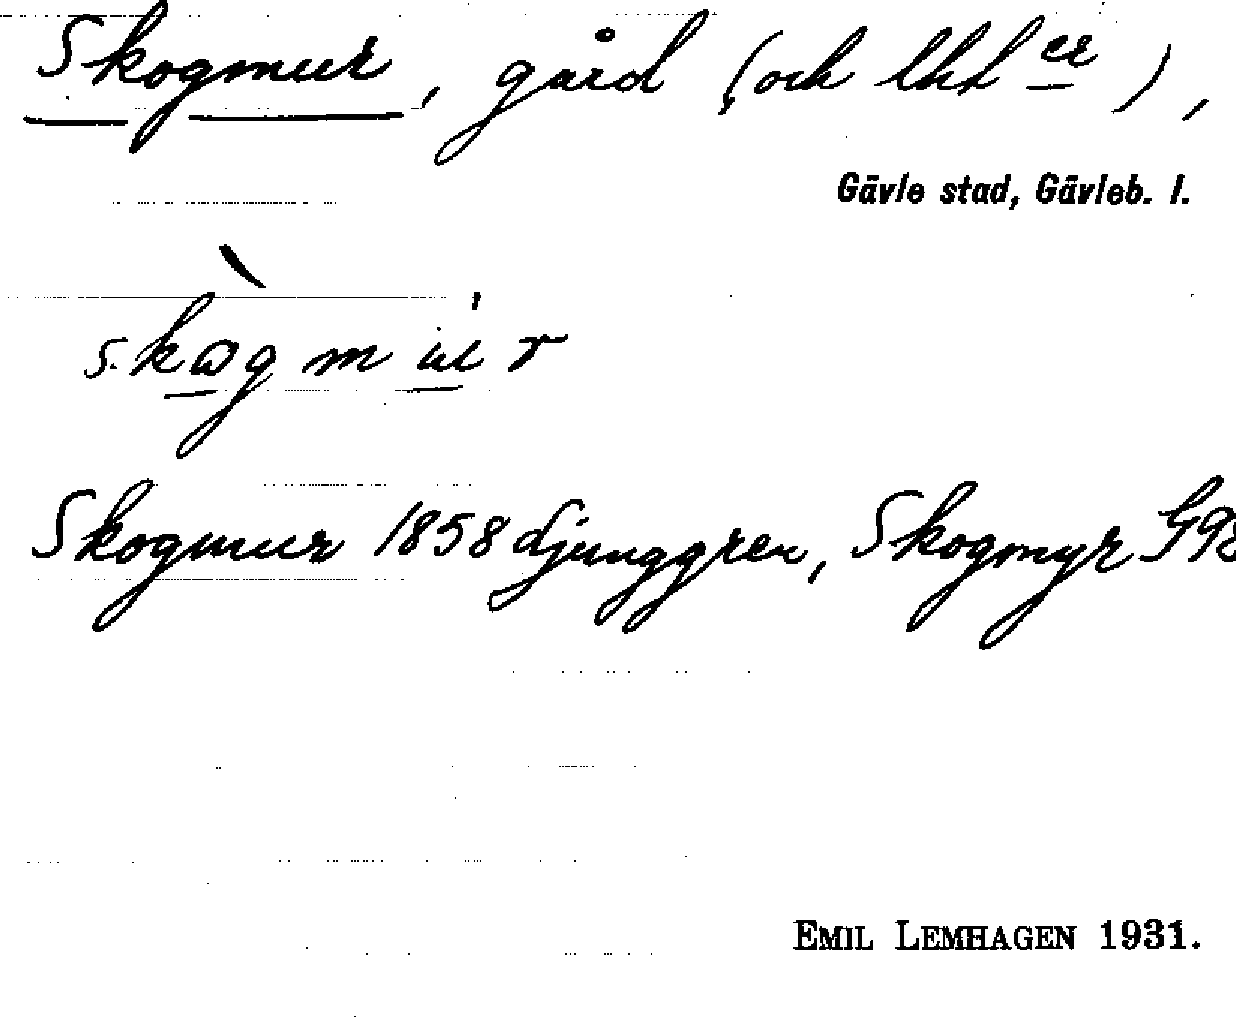 Skogmur, gård (och lht er),
Gävle stad, Gävleb. l.
Skogmur 1858 Ljunggren, Skogmyr G98
EMIL LEMHAGEN 1931.